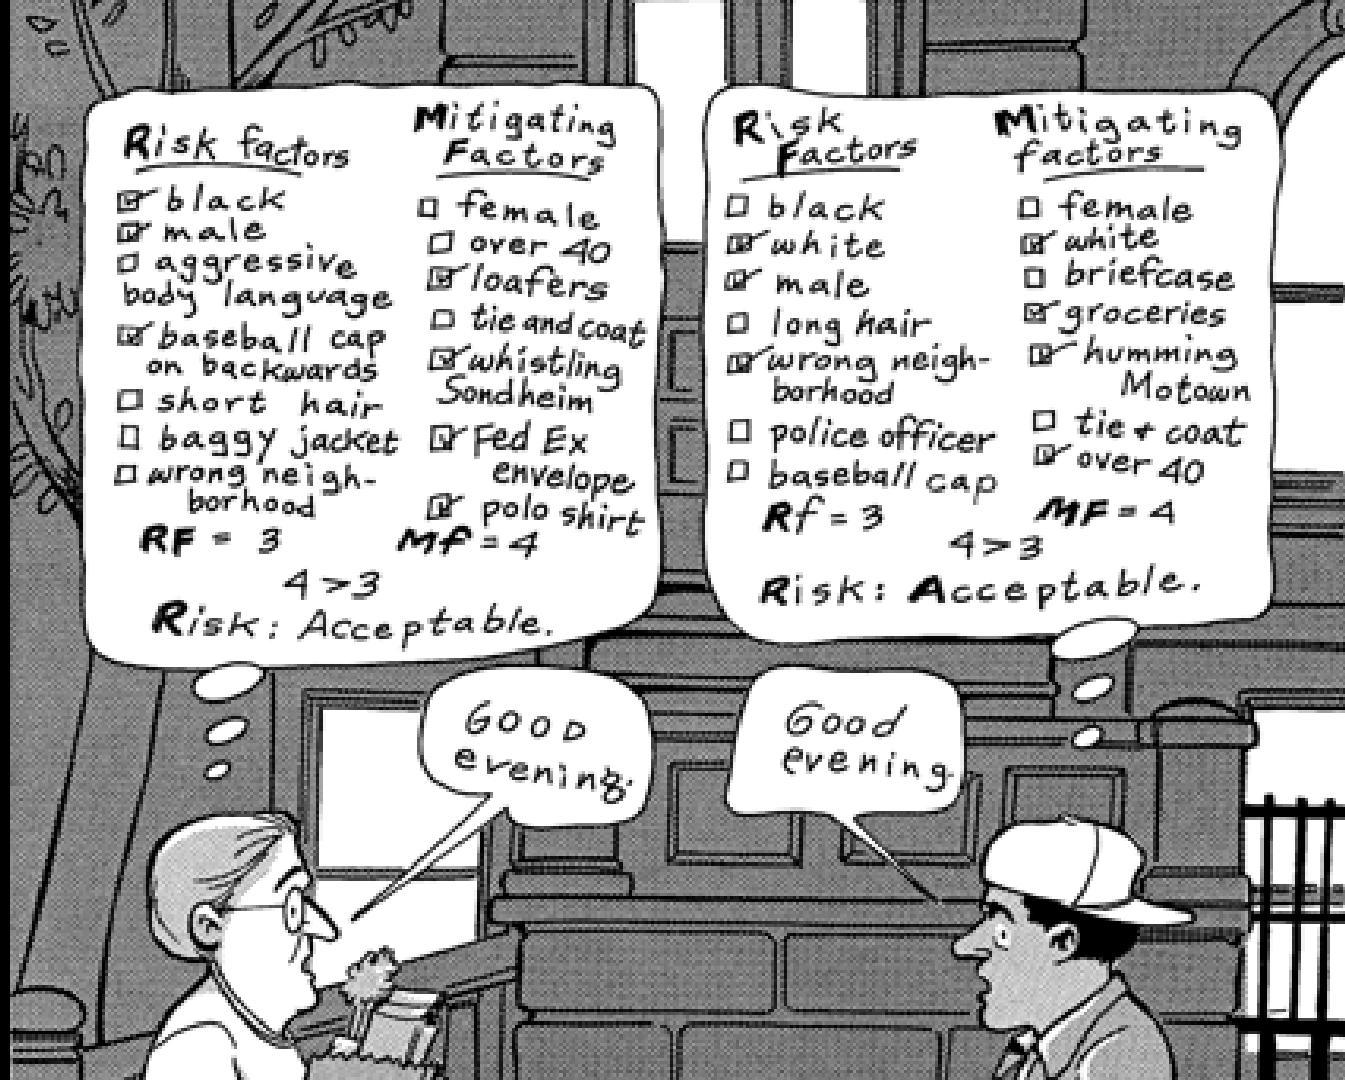 Risk factors
black
male
aggressive
body language
baseball cap
on backwards
short hair
baggy jacket
wrong neigh-
borhood
RF = 3
Mitigating
Factors
female
over 40
loafers
tie and coat
whistling
Sondheim
Fed Ex
envelope
polo shirt
MF = 4
4 > 3
Risk: Acceptable.
Risk
Factors
black
white
male
long hair
wrong neigh-
borhood
police officer
baseball cap
Rf = 3
Mitigating
factors
female
white
briefcase
groceries
humming
Motown
tie + coat
over 40
MF = 4
4 > 3
Risk: Acceptable.
GOOD
evening.
Good
evening